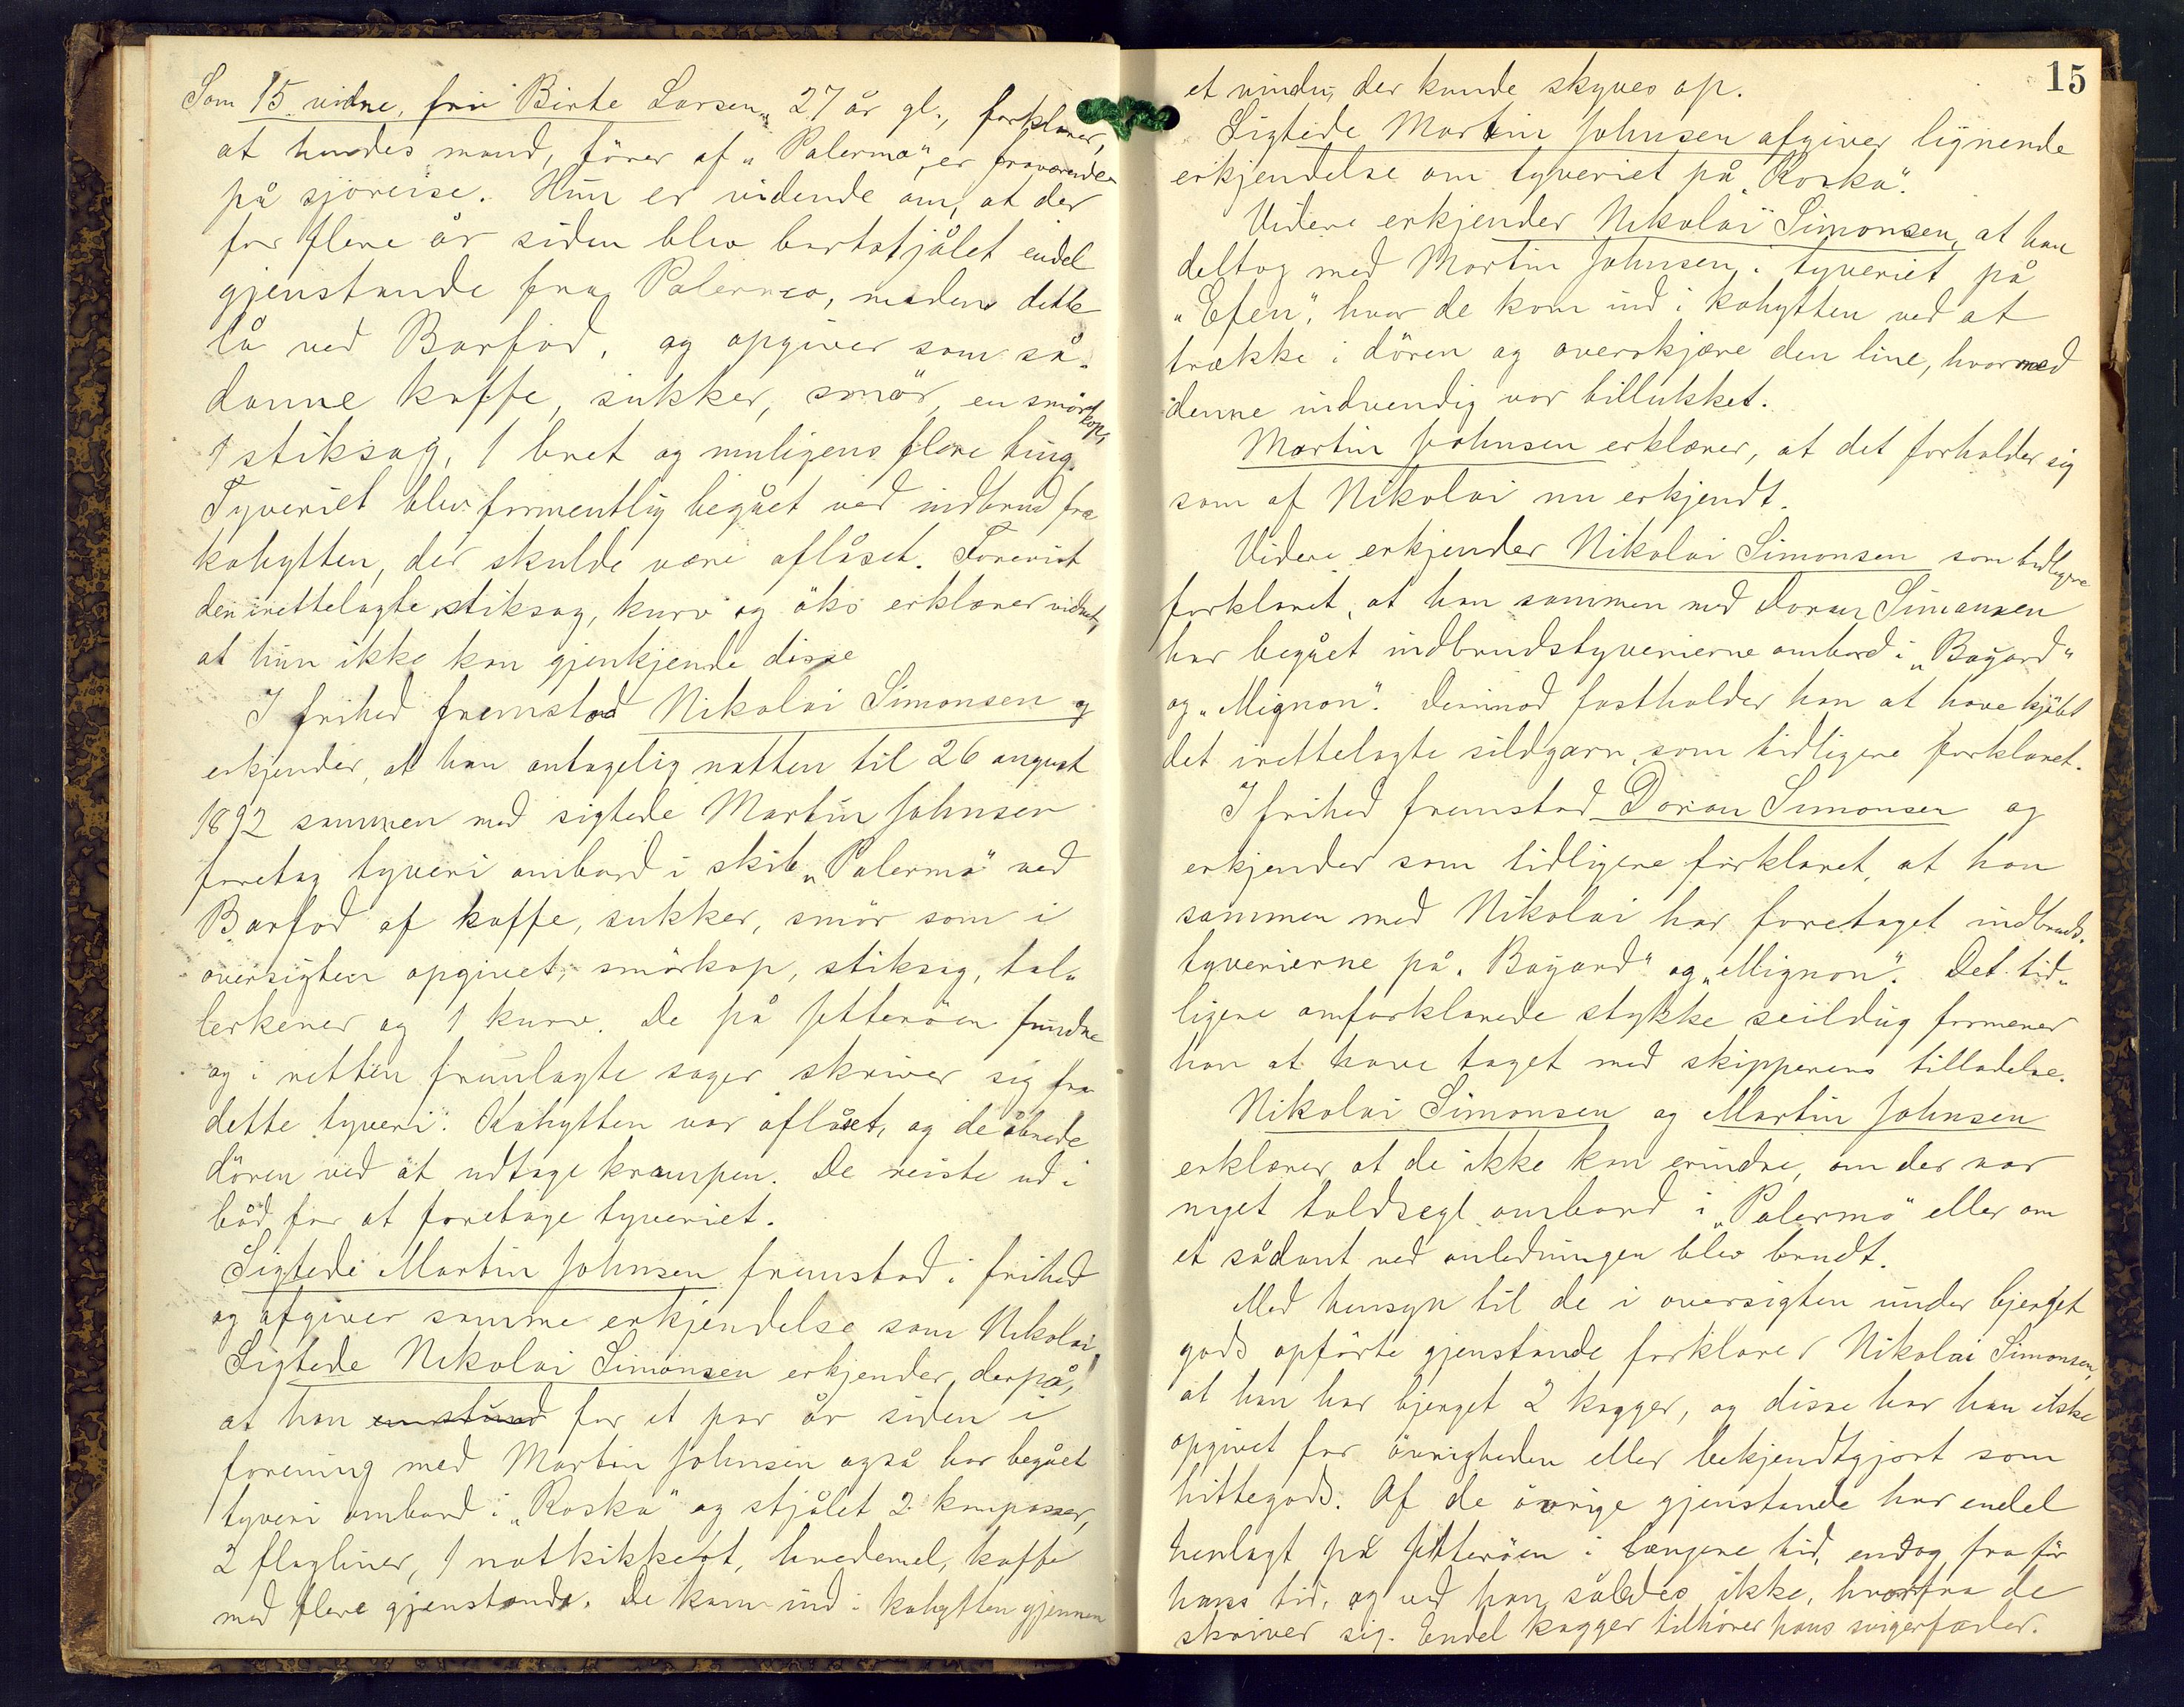 Som 15. vidne, fru Birte Larsen, 27 år gl., forklarer,
at hendes mand, fører af „Palermo", er fraværende
på sjøreise. Hun er vidende om, at der
for flere år siden blev bortstjålet endel
gjenstande fra Palermo, medens dette
lå ved Barfod, og opgiver som så-
danne kaffe, sukker, smør, en smørkop,
1 stiksag, 1 bret og muligens flere ting.
Tyveriet blev formentlig begået ved indbrud fra
kahytten, der skulde være aflåset. Forevist
den irettelagte stiksag, kurv og øks erklærer vidnet,
at hun ikke kan gjenkjende disse
I frihed fremstod Nikolai Simonsen og
erkjender, at han antagelig natten til 26 august
1892 sammen med sigtede Martin Johnsen
foretog tyveri ombord i skib „Palermo" ved
Barfod af kaffe, sukker, smør som i
oversigten opgivet, smørkop, stiksag, tal-
lerkener og 1 kurv. De på Jetterøen fundne
og i retten fremlagte sager skriver sig fra
dette tyveri. Kahytten var aflåset, og de åbnede
døren ved at udtage krampen. De reiste ud i
båd for at foretage tyveriet.
Sigtede Martin Johnsen fremstod i frihed
og afgiver samme erkjendelse som Nikolai.
Sigtede Nikolai Simonsen erkjender derpå,
at han for et par år siden i
forening med Martin Johnsen også har begået
tyveri ombord i „Roska" og stjålet 2 kompasser,
2 flagliner, 1 natkikkert, hvedemel, kaffe
med flere gjenstande. De kom ind i kahytten gjennem
15
et vindu, der kunde skyves op.
Sigtede Martin Johnsen afgiver lignende
erkjendelse om tyveriet på „Roska".
Videre erkjender Nikolai Simonsen, at han
deltog med Martin Johnsen i tyveriet på
„Efen", hvor de kom ind i kahytten ved at
trække i døren og overskjære den line, hvormed
denne indvendig var tillukket.
Martin Johnsen erklærer, at det forholder sig
som af Nikolai nu erkjendt.
Videre erkjender Nikolai Simonsen som tidligere
forklaret, at han sammen med Doran Simonsen
har begået indbrudstyverierne ombord i „Bayard"
og „Mignon". Derimod fastholder han at have kjøbt
det irettelagte sildgarn, som tidligere forklaret.
I frihed fremstod Doran Simonsen og
erkjender som tidligere forklaret, at han
sammen med Nikolai har foretaget indbruds-
tyverierne på „Bayard" og „Mignon". Det tid-
ligere omforklarede stykke seildug formener
han at have taget med skipperens tilladelse.
Nikolai Simonsen og Martin Johnsen
erklærer, at de ikke kan erindre, om der var
noget toldsegl ombord i „Palermo" eller om
et sådant ved anledningen blev brudt.
Med hensyn til de i oversigten under bjerget
gods opførte gjenstande forklarer Nikolai Simonsen,
at han har bjerget 2 kagger, og disse har han ikke
opgivet for øvrigheden eller bekjendtgjort som
hittegods. Af de øvrige gjenstande har endel
henlagt på Jetterøen i længere tid, endog fra før
hans tid, og ved han således ikke, hvorfra de
skriver sig. Endel kagger tilhører hans svigerfader.